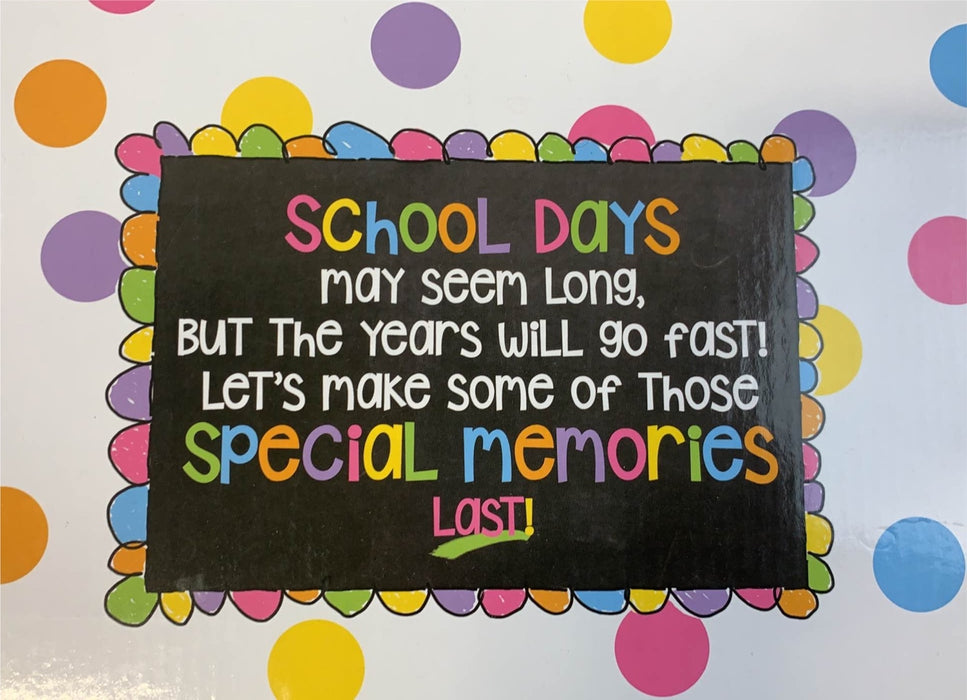 SCHOOL DAYS
may seem Long,
BUT The years WiLL go fast!
LeT's make some of Those
special memories
Last!